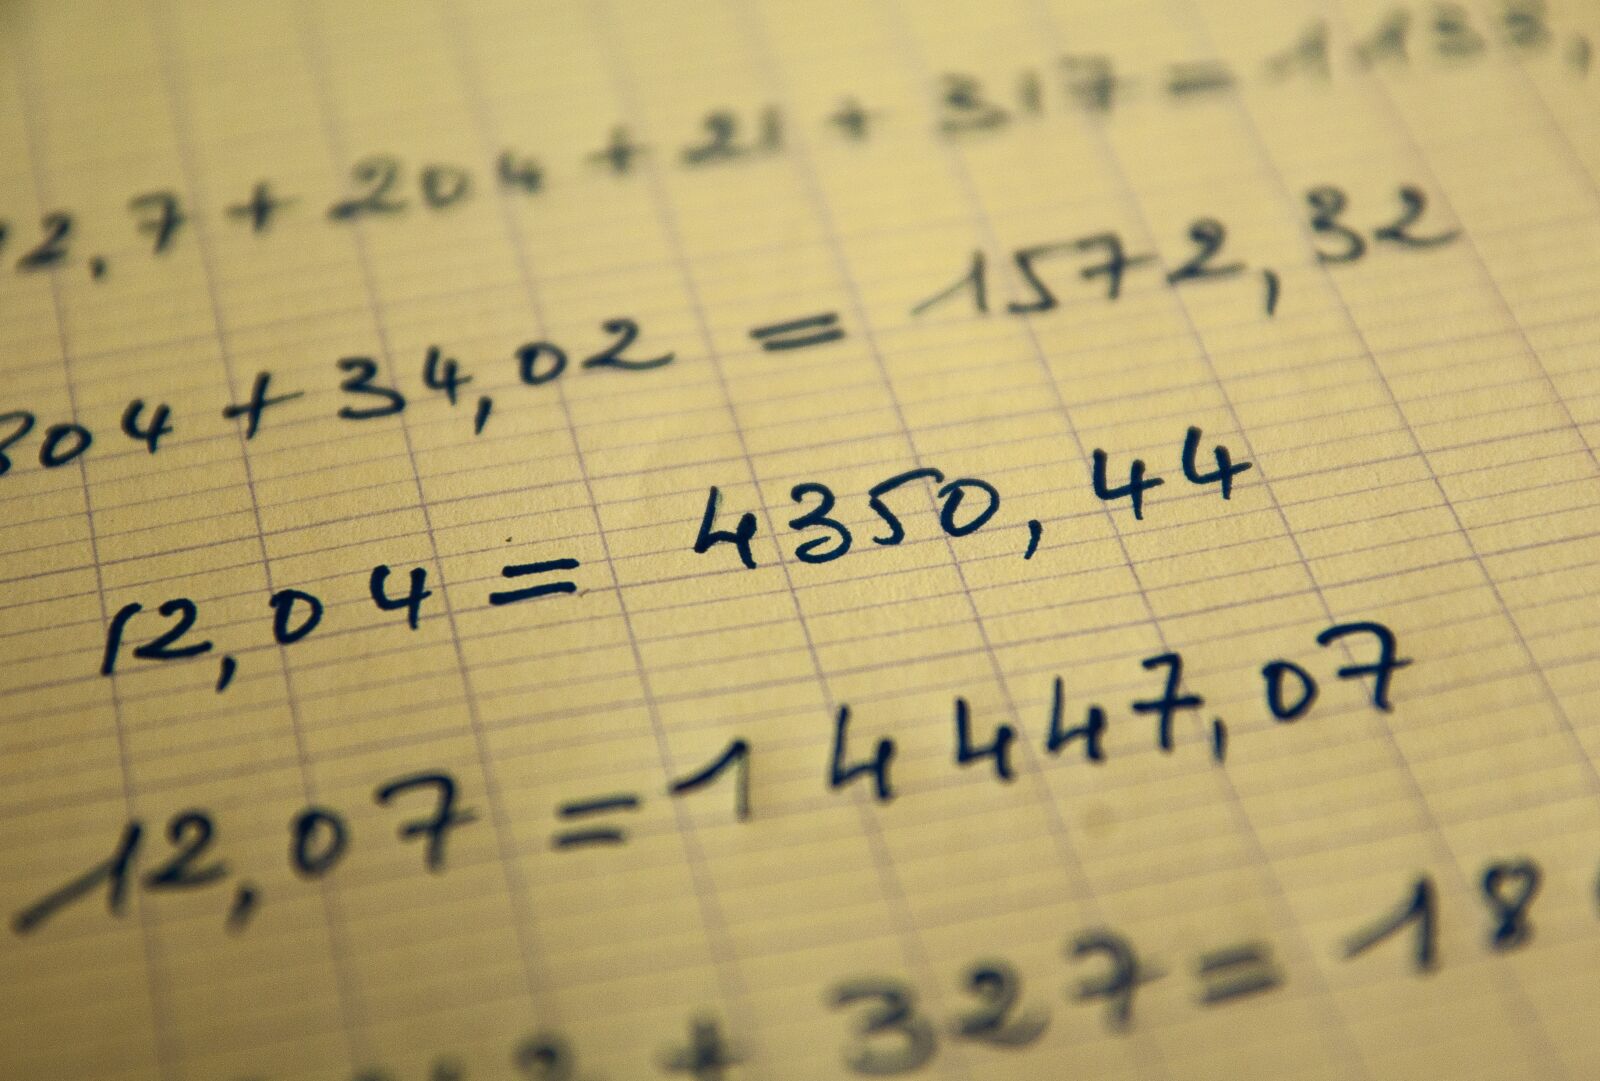 2,7 + 204 + 21 + 317 = 1137,
304 + 34,02 = 1572,32
12,04 = 4350,44
12,07 = 14447,07
+ 327 = 18